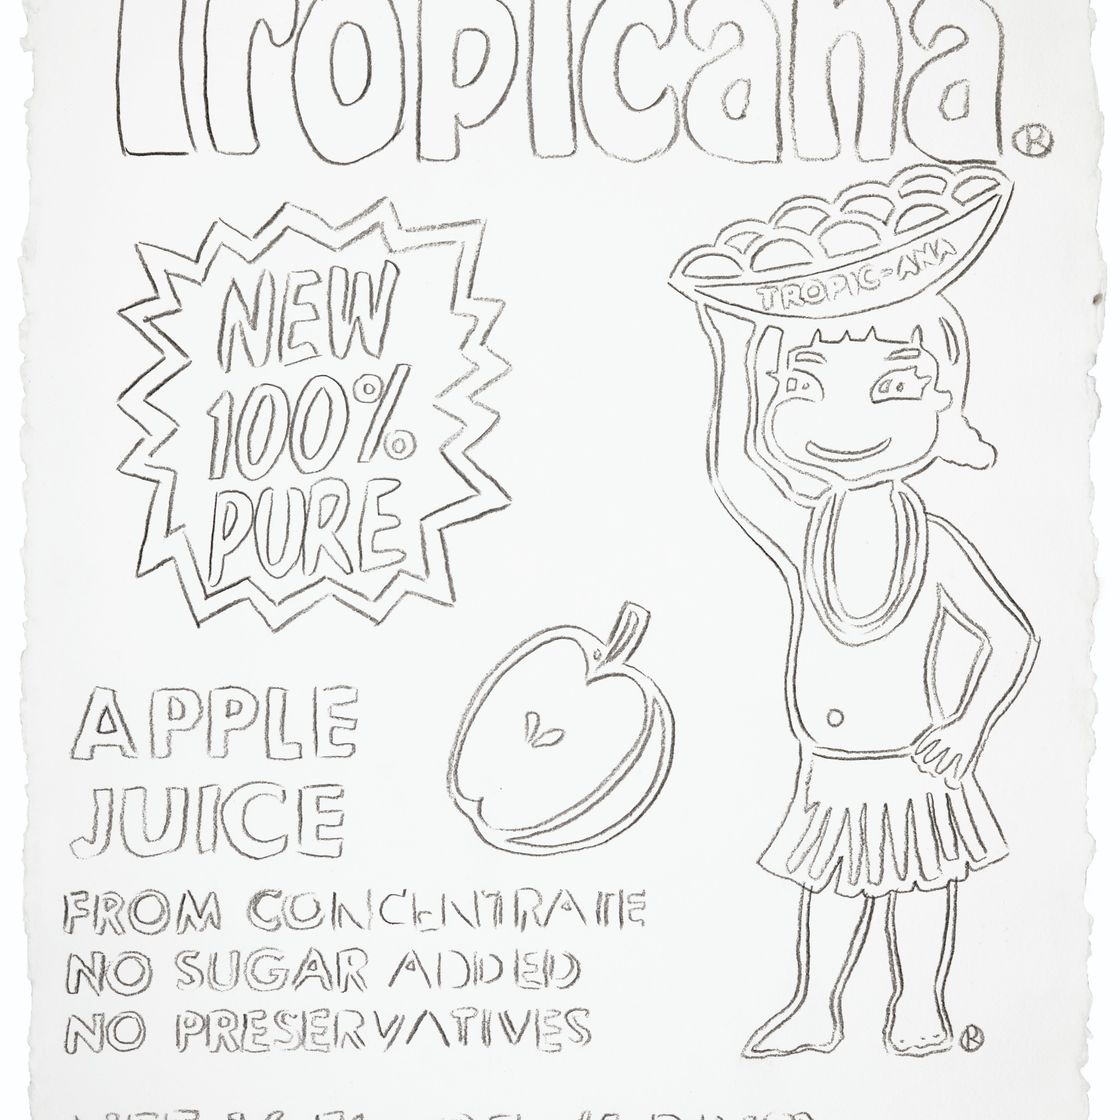 Tropicana®
TROPIC-ANA
NEW
100%
PURE
APPLE
JUICE
FROM CONCENTRATE
NO SUGAR ADDED
NO PRESERVATIVES
®